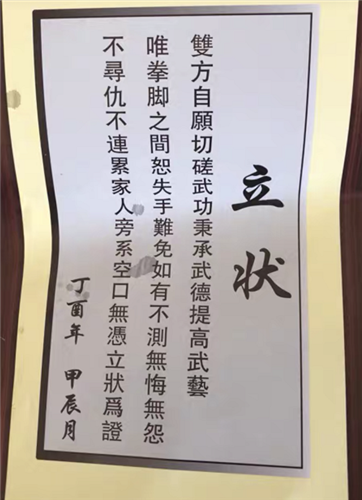 立状
雙方自願切磋武功秉承武德提高武藝
唯拳脚之間恕失手難免如有不測無悔無怨
不尋仇不連累家人旁系空口無憑立状爲證
丁酉年 甲辰月